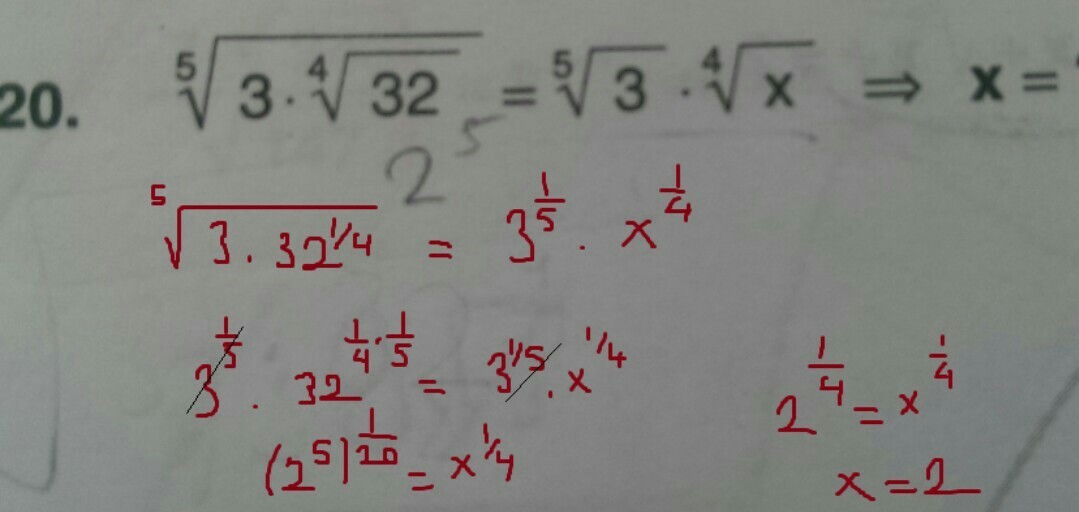 20. ⁵√(3·⁴√32) = ⁵√3 · ⁴√x ⇒ x =
2⁵
⁵√(3.32^1/4) = 3^1/5 . x^1/4
3^1/5 . 32^1/4·1/5 = 3^1/5 . x^1/4
(2⁵)^1/20 = x^1/4
2^1/4 = x^1/4
x = 2